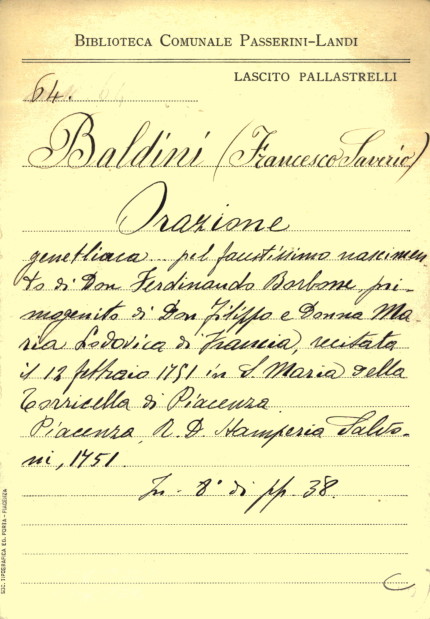 BIBLIOTECA COMUNALE PASSERINI-LANDI
LASCITO PALLASTRELLI
64.
Baldini (Francesco Saverio)
Orazione
genetliaca pel faustissimo nascimen-
to di Don Ferdinando Borbone, pri-
mogenito di Don Filippo e Donna Ma-
ria Lodovica di Francia, recitata
il 12 febbraio 1751 in S. Maria della
Torricella di Piacenza
Piacenza, R. D. Stamperia Salvo-
ni, 1751.
In-8° di pp. 38.
SOC. TIPOGRAFICA ED. PORTA - PIACENZA